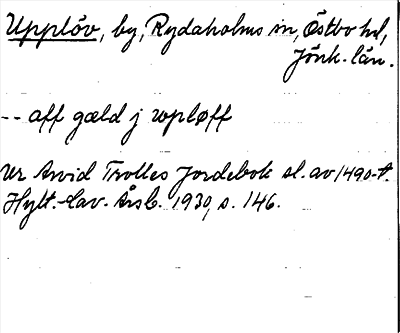 Upplöv, by, Rydaholms sn, Östbo hd,
Jönk. län.
-- aff gæld j wpløff
Ur Arvid Trolles Jordebok sl. av 1490-t.
Hylt.-Cav. Årsb. 1930, s. 146.